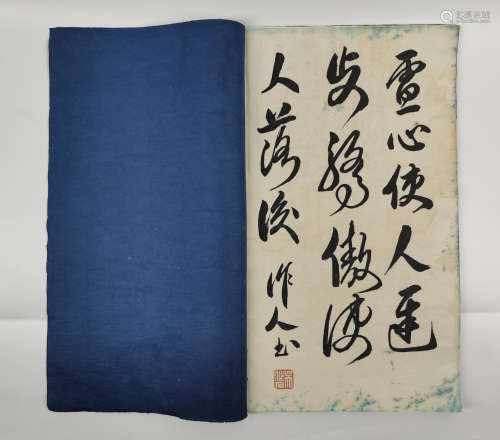 虚心使人進
步驕傲使
人落後
作人书